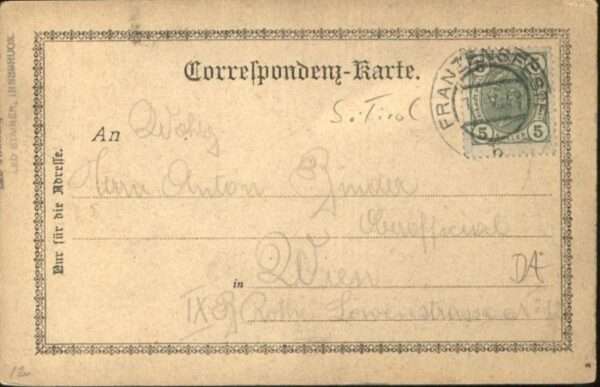 Correspondenz-Karte.
S. Tirol
FRANZENSFESTE
5 5
An
Herrn Anton Binder
Oberofficial
in Wien
DA
IX Rothe Löwenstrasse
Nur für die Adresse.
LEO STAINER, INNSBRUCK
12